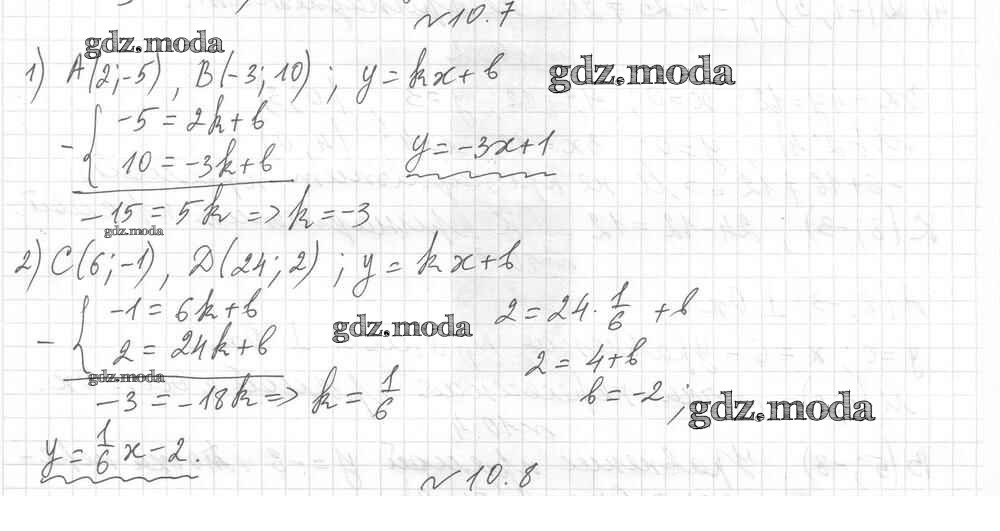 №10.7
gdz.moda
1) A(2;-5), B(-3; 10) ; y = kx + b
gdz.moda
- { -5 = 2k + b
10 = -3k + b
y = -3x + 1
-15 = 5k => k = -3
gdz.moda
2) C(6;-1), D(24; 2) ; y = kx + b
- { -1 = 6k + b
2 = 24k + b
gdz.moda
-3 = -18k => k = 1/6
gdz.moda
2 = 24 · 1/6 + b
2 = 4 + b
b = -2 ;
gdz.moda
y = 1/6 x - 2.
№10.8